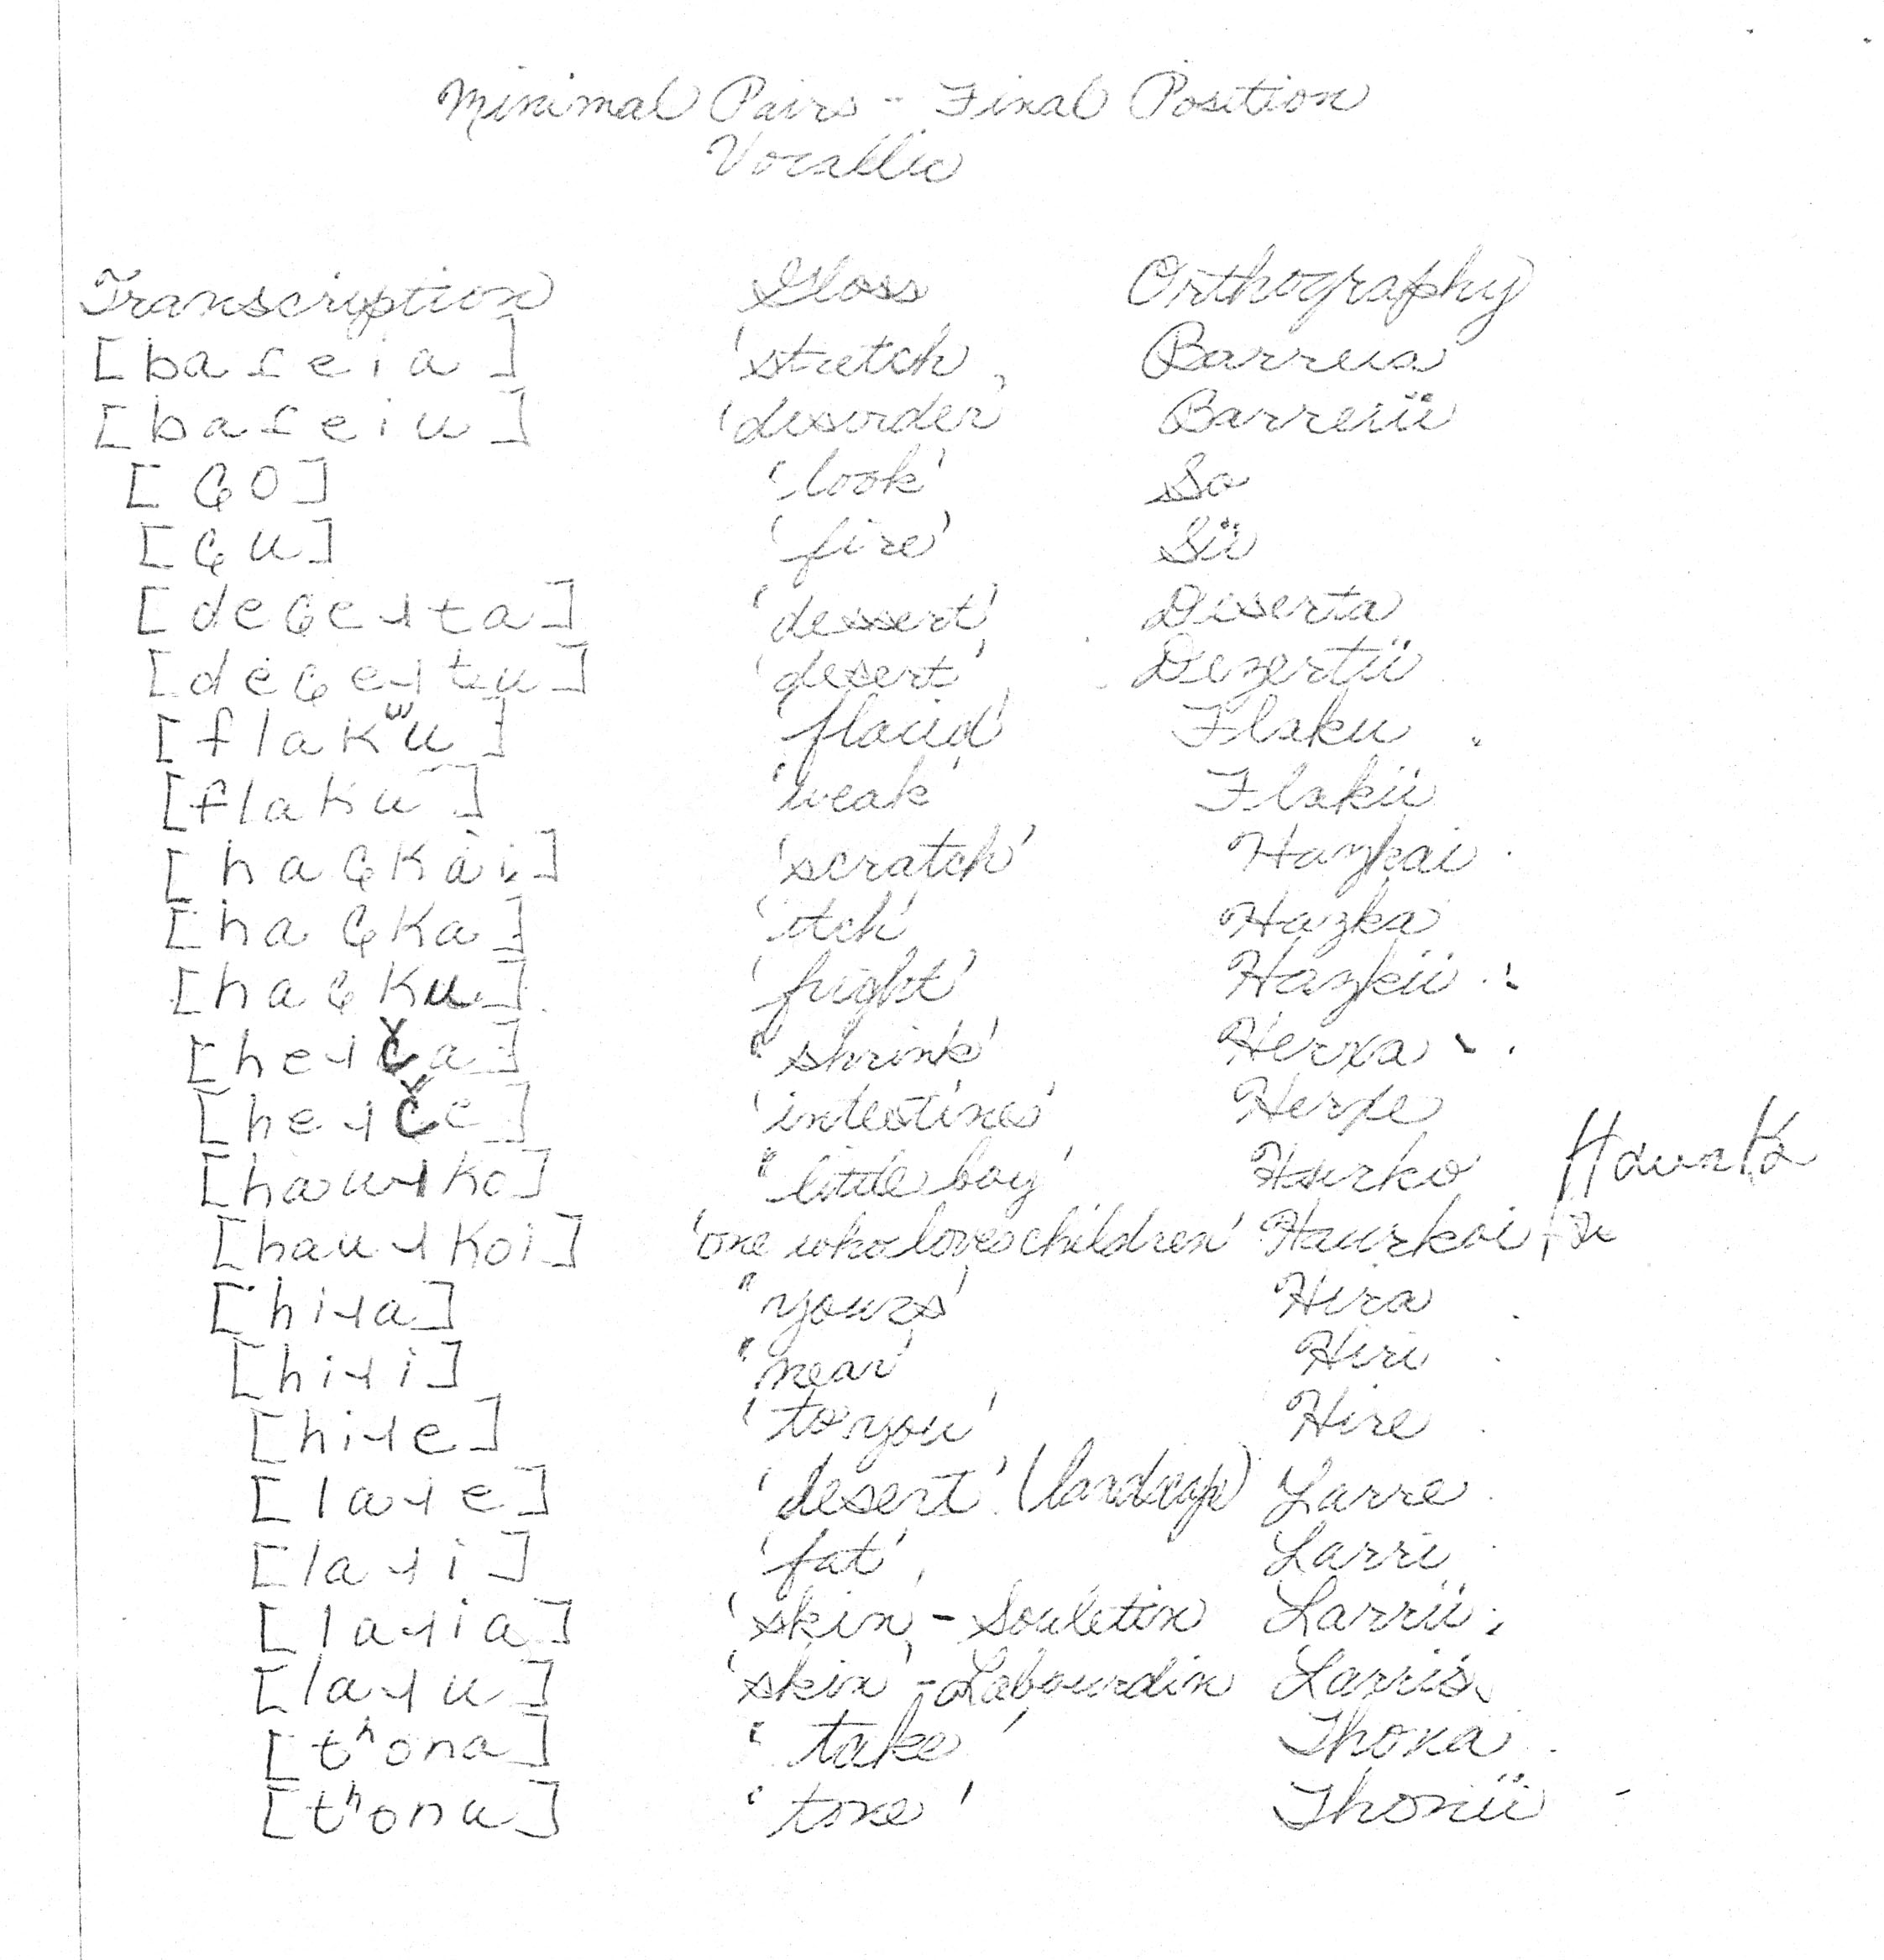 Minimal Pairs - Final Position
Vocallic
Transcription Gloss Orthography
[baɾeia] 'stretch, Barreia
[baɾeiu] 'disorder' Barreiü
[ɕo] 'look' So
[ɕu] 'fire' Sü
[deɕeɹta] 'dessert' Diserta
[deɕeɹtu] 'desert' Dezertü
[flakʷu] 'flacid' Flaku
[flaku] 'weak' Flakü
[haɕkai] 'scratch' Hazkai
[haɕka] 'itch' Hazka
[haɕku] 'fright' Hazkü
[heɹča] 'shrink' Herxa
[heɹče] 'intestines' Herxe
[hauɹko] 'little boy' Hurko
[hauɹkoi] 'one who loves children' Haurkoi
[hiɹa] "yours' Hira
[hiɹi] "near' Hiri
[hiɹe] 'to you' Hire
[laɹe] 'desert' (landscap) Larre
[laɹi] 'fat' Larri
[laɹia] 'skin' - Souletin Larrü
[laɹu] 'skin' - Labourdin
[tʰona] 'take' Thona
[tʰonu] 'tone' Thonü